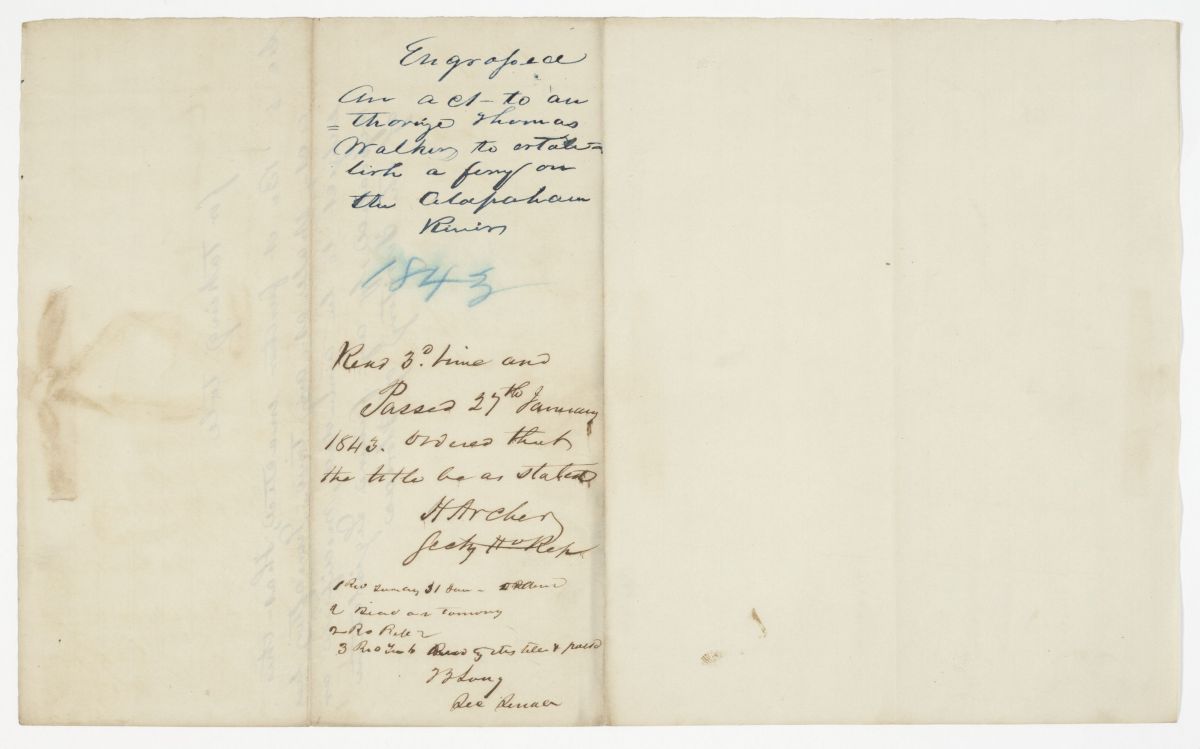 Engrossed
An act to au
= thorize Thomas
Walker to estab=
lish a ferry on
the Alapahaw
River
1843
Read 3d. time and
Passed 27th January
1843. Ordered that
the title be as stated
H Archer
Secty Ho Rep
1 Rd Sunday 31 Jan -
2 Read on
2 Rd Feb 2
3 Rd Feb 6 Read by its title & passed
T B Long
Sec Senate